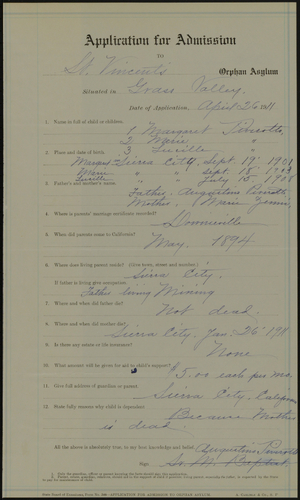 Application for Admission
TO
St. Vincent's Orphan Asylum
Situated in Grass Valley.
Date of Application, April 26
1. Name in full of child or children.
1. Margaret
2. Marie "
3. Lucille "
2. Place and date of birth.
Sierra City, Sept. 19 1901
Marie " " Sept 18 1903
Lucille " " July 15 1908
3. Father's and mother's name.
Father, Augustino
Mother, Marie
4. Where is parents' marriage certificate recorded?
Downieville
5. When did parents come to California?
May, 1894
6. Where does living parent reside? (Give town, street and number.)
Sierra City.
If father is living give occupation.
Father living Mining
7. Where and when did father die?
Not dead.
8. Where and when did mother die?
Sierra City. Jan. 26' 1911
9. Is there any estate or life insurance?
None
10. What amount will be given for or by child's support?
$5.00 each per mo.
11. Give full address of guardian or parent.
Sierra City, California
12. State fully reason why child is dependent.
Because Mother
is dead.
All the above is absolutely true, to my best knowledge and belief.
Sign